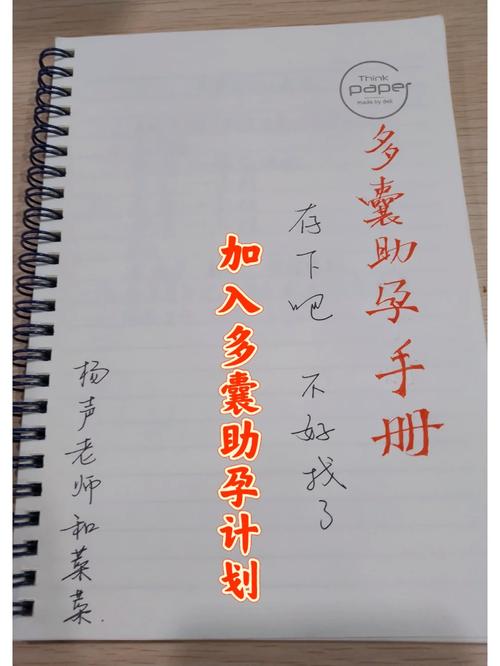 Think
paper
made by deli
多囊助孕手册
存下吧 不好找了
加入多囊助孕计划
杨声老师和菜菜.